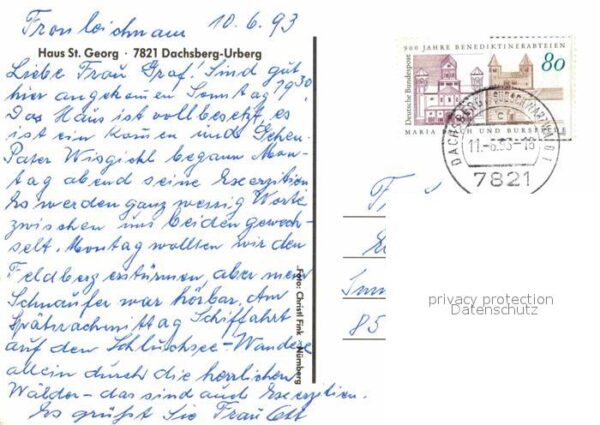 Fronleichnam 10.6.93
Haus St. Georg · 7821 Dachsberg-Urberg
Liebe Frau Graf! Sind gut
hier angekommen Sonntag 19³⁰.
Das Haus ist voll besetzt, es
ist ein Kommen und Gehen.
Pater Wisgickl begann Mon-
tag abend seine Exerzitien
Es werden ganz wenig Worte
zwischen uns beiden gewech-
selt. Montag wollten wir den
Feldberg erstürmen, aber mein
Schnaufer war hörbar. Am
Spätnachmittag Schiffahrt
auf dem Schluchsee - Wandere
allein durch die herrlichen
Wälder - das sind auch Exerzitien.
Es grüßt Sie Frau Ott
Foto: Christl Fink Nürnberg
900 JAHRE BENEDIKTINERABTEIEN
Deutsche Bundespost
80
MARIA LAACH UND BURSFELDE
DACHSBERG (SÜDSCHWARZWALD)
c
11.-6.93-16
7821
F
85
privacy protection
Datenschutz